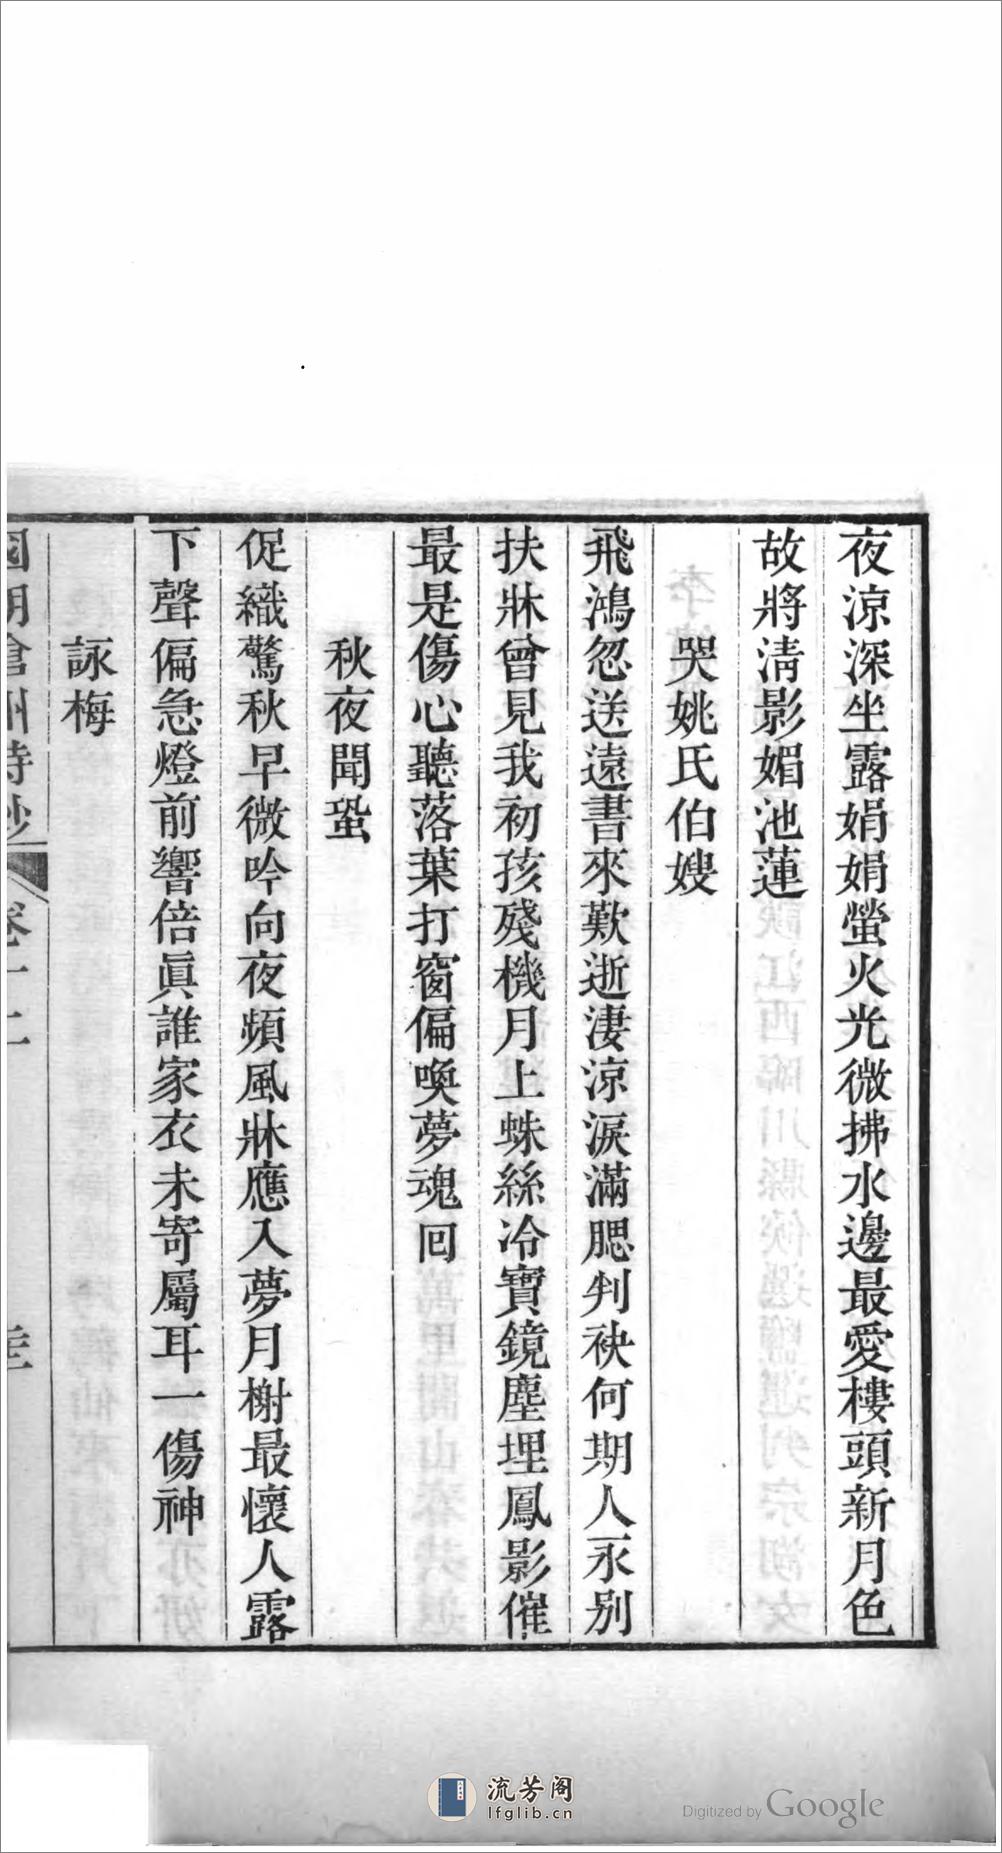 夜涼深坐露娟娟螢火光微拂水邊最愛樓頭新月色
故將淸影媚池蓮
哭姚氏伯嫂
飛鴻忽送遠書來歎逝淒涼淚滿腮判袂何期人永別
扶牀曾見我初孩殘機月上蛛絲冷寶鏡塵埋鳳影催
最是傷心聽落葉打窗偏喚夢魂回
秋夜聞蛩
促織驚秋早微吟向夜頻風牀應入夢月榭最懷人露
下聲偏急燈前響倍眞誰家衣未寄屬耳一傷神
詠梅
國朝滄州詩鈔
卷十二
流芳阁
lfglib.cn
Digitized by Google